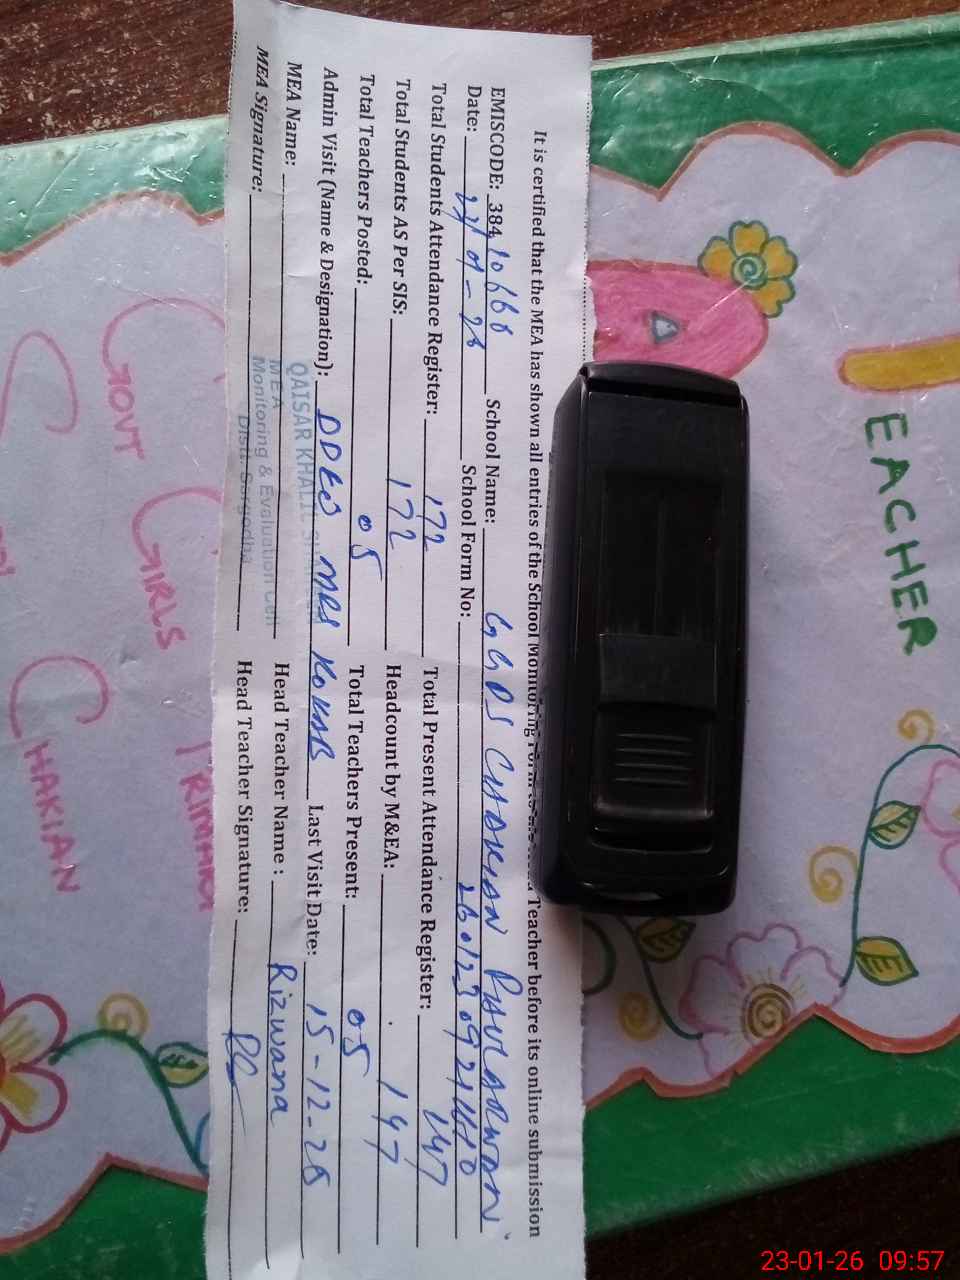 It is certified that the MEA has shown all entries of the School Monitoring Form to Teacher before its online submission
EMISCODE: 38410668 School Name: GGPS CHAKIAN PHULARWAN
Date: School Form No:
Total Students Attendance Register: 172 Total Present Attendance Register: 147
Total Students AS Per SIS: 172 Headcount by M&EA: 147
Total Teachers Posted: 05 Total Teachers Present: 05
Admin Visit (Name & Designation): DDEO MRS KOKAB Last Visit Date: 15-12-25
MEA Name: QAISAR KHALIL Head Teacher Name: Rizwana
MEA
MEA Signature: Head Teacher Signature:
Monitoring & Evaluation Cell
Distt. Sargodha
EACHER
GOVT
GIRLS
CHAKIAN
23-01-26 09:57